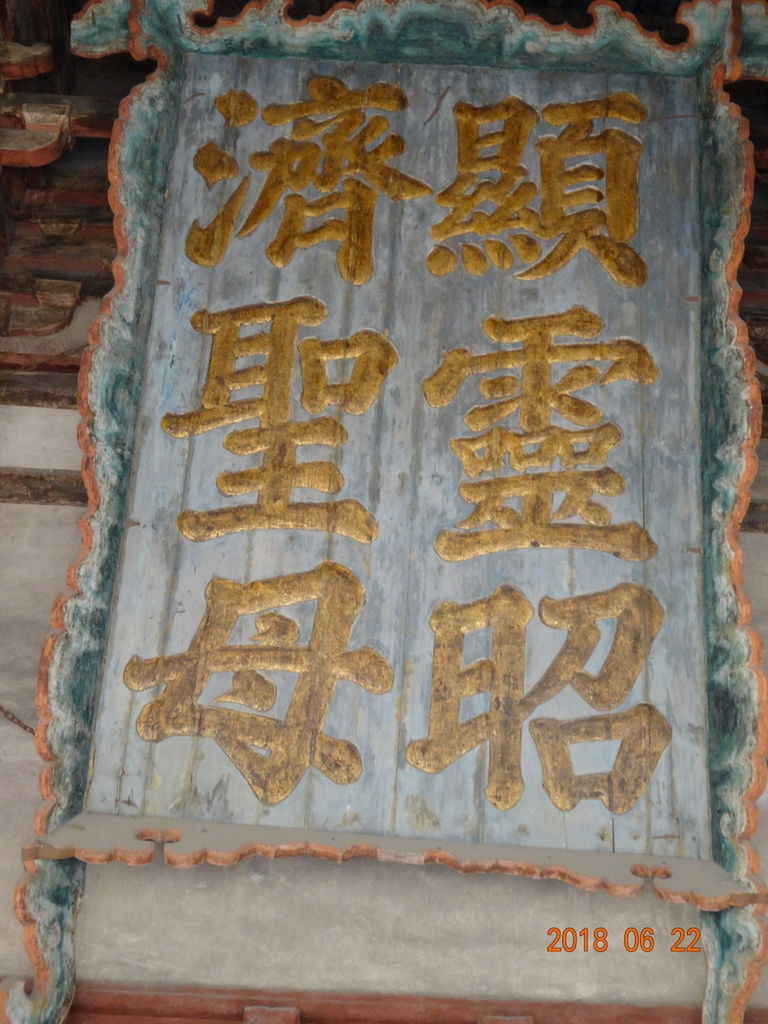 顯靈昭
濟聖母
2018 06 22